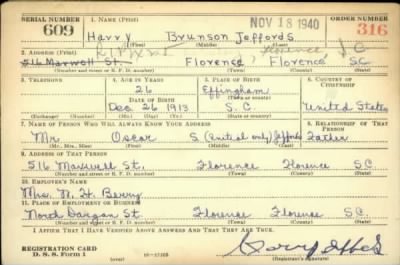 SERIAL NUMBER 1. NAME (Print) NOV 18 1940 ORDER NUMBER
609 Harry Brunson Jeffords 316
(First) (Middle) (Last)
2. ADDRESS (Print) Florence S C
516 Maxwell St. Florence, Florence SC
(Number and street or R. F. D. number) (Town) (County) (State)
3. TELEPHONE 4. AGE IN YEARS 5. PLACE OF BIRTH 6. COUNTRY OF CITIZENSHIP
26 Effingham
DATE OF BIRTH (Town or county)
Dec 26 1913 S. C. United States
(Exchange) (Number) (Mo.) (Day) (Yr.) (State or country)
7. NAME OF PERSON WHO WILL ALWAYS KNOW YOUR ADDRESS 8. RELATIONSHIP OF THAT PERSON
Mr Oscar S (initial only) Jeffords Father
(Mr., Mrs., Miss) (First) (Middle) (Last)
9. ADDRESS OF THAT PERSON
516 Maxwell St. Florence Florence S.C.
(Number and street or R. F. D. number) (Town) (County) (State)
10. EMPLOYER'S NAME
Mrs. M. H. Berry
11. PLACE OF EMPLOYMENT OR BUSINESS
North Dargan St. Florence Florence S.C.
(Number and street or R. F. D. number) (Town) (County) (State)
I AFFIRM THAT I HAVE VERIFIED ABOVE ANSWERS AND THAT THEY ARE TRUE.
REGISTRATION CARD
D. S. S. Form 1 16-17105 (Registrant's signature)